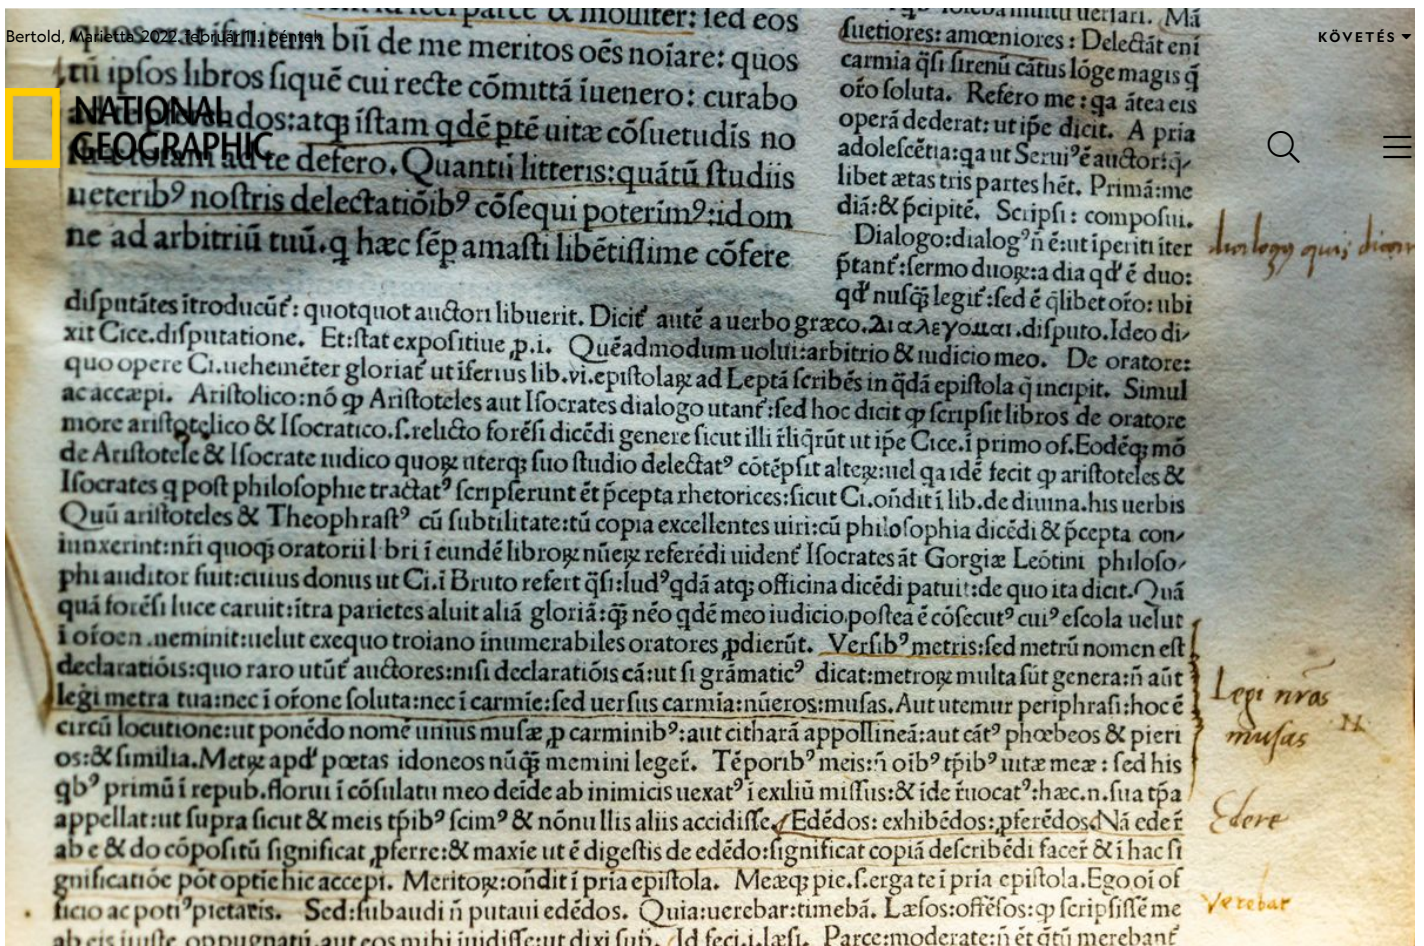 Bertold, Marietta 2022. február 11., péntek
KÖVETÉS
NATIONAL
GEOGRAPHIC
quos meritum biī de me meritos oēs noīare: quos
tū ipſos libros ſiquē cui recte cōmittā iuenero: curabo
dos:atq; iſtam qdē ptē uitæ cōſuetudīs no
ſtræ totam ad te defero. Quantū litteris:quātū ſtudiis
ueteribꝰ noſtris delectatiōibꝰ cōſequi poterimꝰ:id om
ne ad arbitriū tuū.q hæc ſēp amaſti libētiſſime cōfere
ſuetiores: amœniores: Delectāt eni
carmīa q̄ſi ſirenū cātus lōge magis q̄
oŕo ſoluta. Refero me: qa ātea eis
operā dederat: ut ip̄e dicit. A pria
adoleſcētia:qa ut Seruiꝰ ē auctor:q-
libet ætas tris partes hēt. Primā:me
diā:& p̄cipitē. Scripſi: compoſui.
Dialogo:dialogꝰ n̄ ē:ut īperiti īter
p̄tant́:ſermo duoꝝ:a dia qd' ē duo:
qd' nuſq̄ legit́:ſed ē q̄libet oŕo: ubi
diſputātes ītroducūt́: quotquot auctori libuerit. Dicit́ autē a uerbo græco.διαλεγομαι.diſputo.Ideo di-
xit Cice.diſputatione. Et:ſtat expoſitiue ꝓ.i. Quēadmodum uolui:arbitrio & iudicio meo. De oratore:
quo opere Ci.uehemēter gloriat́ ut īferius lib.vi.epiſtolaꝝ ad Leptā ſcribēs in q̄dā epiſtola q̄ incipit. Simul
ac accæpi. Ariſtolico:nō ꝙ Ariſtoteles aut Iſocrates dialogo utant́:ſed hoc dicit ꝙ ſcripſit libros de oratore
more ariſtotelico & Iſocratico.ſ.relicto forēſi dicēdi genere ſicut illi r̄liq̄rūt ut ip̄e Cice.ī primo of.Eodēq; mō
de Ariſtotele & Iſocrate iudico quoꝝ uterq; ſuo ſtudio delectatꝰ cōtēpſit alteꝝ:uel qa idē fecit ꝙ ariſtoteles &
Iſocrates q poſt philoſophie tractatꝰ ſcripſerunt ēt p̄cepta rhetorices:ſicut Ci.oñdit ī lib.de diuina.his uerbis
Quū ariſtoteles & Theophraſtꝰ cū ſubtilitate:tū copia excellentes uiri:cū philoſophia dicēdi & p̄cepta con-
iunxerint:nŕi quoq; oratorii libri ī eundē libroꝝ nūeꝝ referēdi uident́ Iſocrates āt Gorgiæ Leōtini philoſo-
phi auditor fuit:cuius domus ut Ci.ī Bruto refert q̄ſi:ludꝰ qdā atq; officina dicēdi patuit:de quo ita dicit.Quā
quā forēſi luce caruit:ītra parietes aluit aliā gloriā:q̄ nēo qdē meo iudicio poſtea ē cōſecutꝰ cuiꝰ eſcola uelut
meminit:uelut ex equo troiano inumerabiles oratores ꝓdierūt. Verſibꝰ metris:ſed metrū nomen eſt
declaratiōis:quo raro utūt́ auctores:niſi declaratiōis cā:ut ſi grāmaticꝰ dicat:metroꝝ multa ſūt genera:n̄ aūt
legi metra tua:nec ī oŕone ſoluta:nec ī carmīe:ſed uerſus carmīa:nūeros:muſas.Aut utemur periphraſi:hoc ē
circū locutione:ut ponēdo nomē unius muſæ ꝓ carminibꝰ:aut citharā appollineā:aut cātꝰ phœbeos & pieri
os:& ſimilia.Metꝝ apd' poetas idoneos nūq̄ memini leger̄. Tēporibꝰ meis:n̄ oībꝰ tp̄ibꝰ uitæ meæ: ſed his
qbꝰ primū ī repub.florui ī cōſulatu meo deīde ab inimicis uexatꝰ ī exiliū miſſus:& īde r̄uocatꝰ:hæc.n.ſua tp̄a
appellat:ut ſupra ſicut & meis tp̄ibꝰ ſcimꝰ & nōnullis aliis accidiſſe. Edēdos: exhibēdos:ꝓferēdos.Nā eder̄
ab e & do cōpoſitū ſignificat ꝓferre:& maxīe ut ē digeſtis de edēdo:ſignificat copiā deſcribēdi facer̄ & ī hac ſi
gnificatiōe pōt optīe hic accepi. Meritoꝝ:oñdit ī pria epiſtola. Meæq; pie.ſ.erga te ī pria epiſtola.Ego oī of
ficio ac potiꝰ pietatis. Sed:ſubaudi n̄ putaui edēdos. Quia:uerebar:timebā. Læſos:offēſos:ꝙ ſcripſiſſē me
ab eis iuſte oppugnatū.aut eos mihi īuidiſſe:ut dixi ſup̄. Id feci.i.læſi. Parce:moderate:n̄ ēt q̄tū merebant́
Legi nras
muſas
Edere
verebar